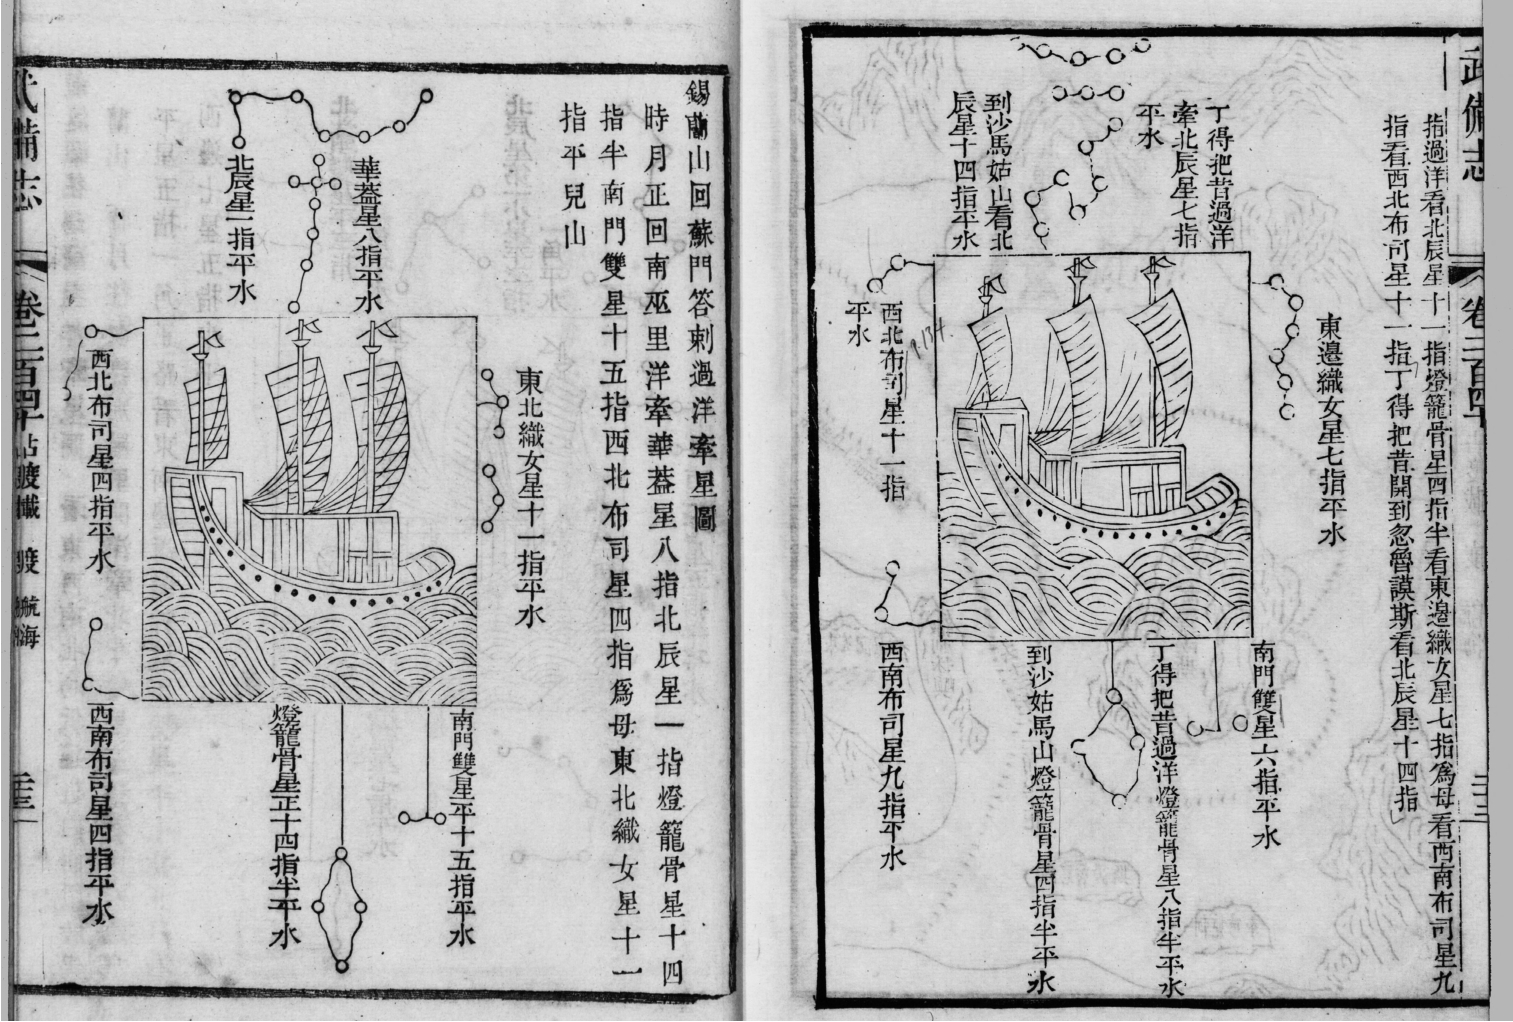 武備志 卷二百四十
指過洋看北辰星十一指燈籠骨星四指半看東邊織女星七指爲母看西南布司星九
指看西北布司星十一指丁得把昔開到忽魯謨斯看北辰星十四指
東邊織女星七指平水
南門雙星六指平水
丁得把昔過洋
牽北辰星七指
平水
丁得把昔過洋燈籠骨星八指半平水
到沙馬姑山看北
辰星十四指平水
到沙姑馬山燈籠骨星四指半平水
西北布司星十一指
平水
西南布司星九指平水
錫蘭山回蘇門答剌過洋牽星圖
時月正回南巫里洋牽華蓋星八指北辰星一指燈籠骨星十四
指半南門雙星十五指西北布司星四指爲母東北織女星十一
指平兒山
東北織女星十一指平水
南門雙星平十五指平水
華蓋星八指平水
燈籠骨星正十四指半平水
北辰星一指平水
西北布司星四指平水
西南布司星四指平水
武備志 卷二百四十 占度載 度 航海